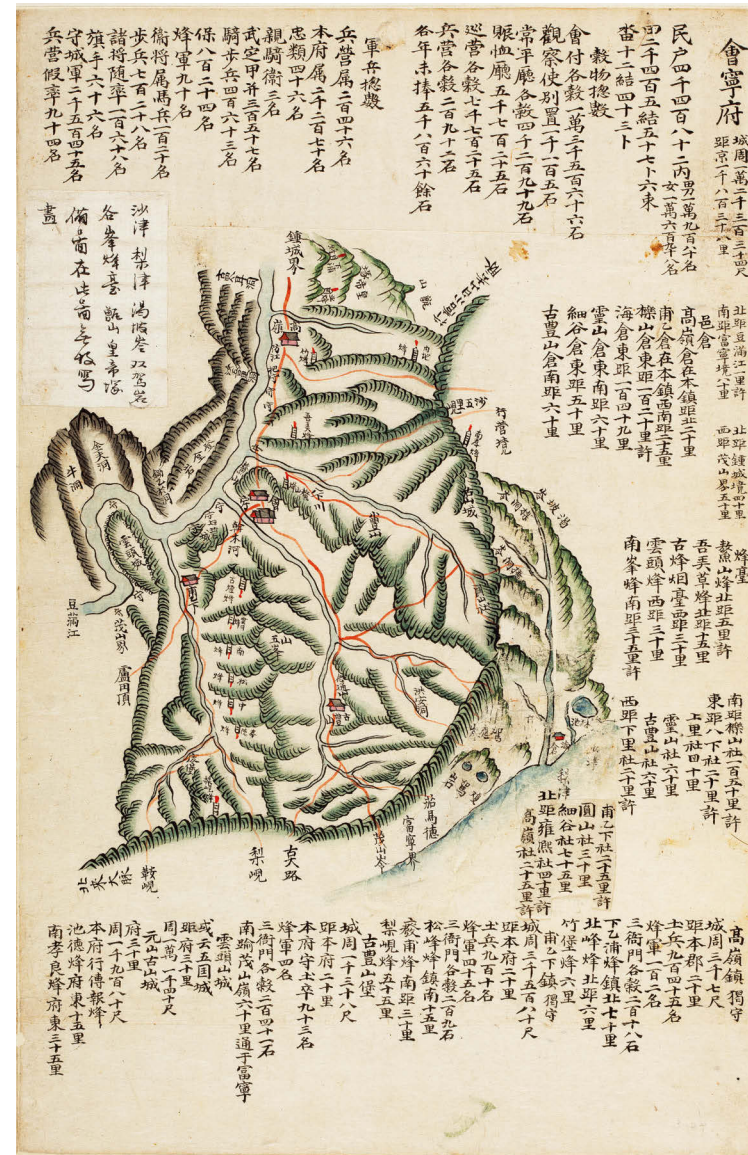 會寧府
城周一萬二千三百三十四尺
距京一千八百三十八里
民户四千四百八十二内
男一萬九百八十名
女一萬六百九十八名
田二千四百五結五十七卜六束
畓十二結四十三卜
穀物摠數
會付各穀一萬三千五百六十六石
觀察使別置一千一百五石
常平廳各穀四千二百九十九石
賑恤廳五千七百二十五石
巡營各穀七千七百二十五石
兵營各穀二百九十二石
各年未捧五千八百六十餘石
軍兵摠數
兵營属二百四十六名
本府属二千二百七十名
忠類四十六名
親騎衛三名
武定甲并三百五十七名
騎步兵四百六十三名
保八百二十四名
烽軍九十名
步兵七百二十八名
衙將属馬兵一百二十名
諸將随率一百六十八名
旗手六十六名
守城軍二千五百四十五名
兵營假率九十四名
沙津 梨津 湯坡岺 双駕岩
各峯烽臺 甑山 皇帝塚
備局畵在此畵無故寫
畵
北距豆滿江一里許
南距富寧境八十里
北距鍾城境四十里
西距茂山界五十里
邑倉
高嶺倉在本鎮距北二十里
甫乙倉在本鎮西南距二十五里
櫟山倉東距一百二十里許
海倉東距一百四十九里
灵山倉東南距六十里
細谷倉東距五十里
古豊山倉南距六十里
烽臺
鰲山烽北距五里許
吾弄草烽北距十五里
古烽烟臺西距三十里
雲頭烽西距三十里
南峯烽南距三十五里許
南距櫟山社一百五十里許
東距八下社二十里許
上里社四十里
灵山社六十里
古豊山社六十里
西距下里社二十里許
甫乙下社二十五里許
圓山社三十里
細谷社七十五里
北距雍熙社四十里許
高嶺社二十五里許
高嶺鎮 獨守
城周三千七尺
距本郡二十里
土兵九百四十五名
烽軍一百二名
三衙門各穀二百十八石
下乙浦烽鎮北七十里
北峰烽北距六里
竹堡烽六里
甫乙下鎮 獨守
城周三千五百八十尺
距本府二十里
土兵九百十名
烽軍四十五名
三衙門各穀二百九石
松峰烽鎮南十五里
梨峴烽五十五里
古豊山堡
城周一千三十八尺
距本府二十里
本府守土卒九十三名
烽軍四名
三衙門各穀二百四十一石
南踰茂山嶺六十里通于富寧
雲頭山城
或云五国城
距府三十里
周一萬一千四十尺
元山古山城
府三十里
周一千九百八十尺
本府行傳報烽
池德烽府東十五里
南孝良烽府東三十五里
鍾城界
行營境
雲頭城
豆滿江
茂山界
盧古頂
梨津
富寧界
茂山岺
古大路
梨峴
鞍峴
北來大脉